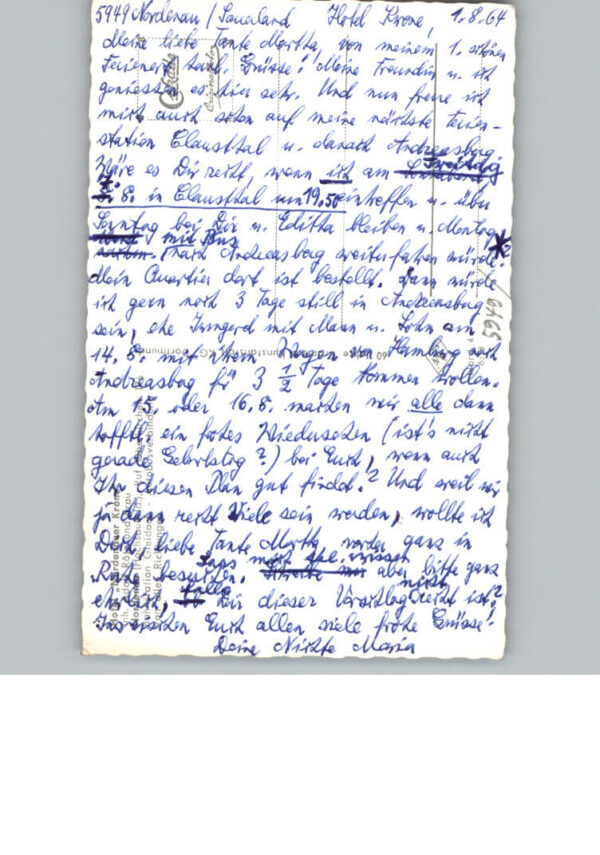 5949 Nordenau / Sauerland Hotel Krone, 1.8.64
Meine liebe Tante Martha, von meinem 1. schönen
Ferienort herzl. Grüsse! Meine Freundin u. ich
geniessen es hier sehr. Und nun freue ich
mich auch schon auf meine nächste Ferien-
station Clausthal u. danach Andreasberg.
Wäre es Dir recht, wenn ich am Freitag
7. 8. in Clausthal um 19.50 eintreffen u. über
Sonntag bei Dir u. Editha bleiben u. Montag
mit Bus nach Andreasberg weiterfahren würde?
Mein Quartier dort ist bestellt. Dann würde
ich gern noch 3 Tage still in Andreasberg
sein, ehe Irmgard mit Mann u. Sohn am
14. 8. mit ihrem Wagen von Hamburg nach
Andreasbag für 3 1/2 Tage kommen wollen.
Am 15. oder 16.8. machen wir alle dann
hofftl. ein frohes Wiedersehen (ist's nicht
gerade Geburtstag?) bei Euch, wenn auch
Ihr diesen Plan gut findet? Und weil wir
ja dann recht Viele sein werden, wollte ich
Dich, liebe Tante Martha, vorher ganz in
Ruhe besuchen. Lass mich tel. wissen aber bitte ganz
ehrlich, falls Dir dieser Vorschlag nicht recht ist?
Inzwischen Euch allen viele frohe Grüsse!
Deine Nichte Maria
5949/